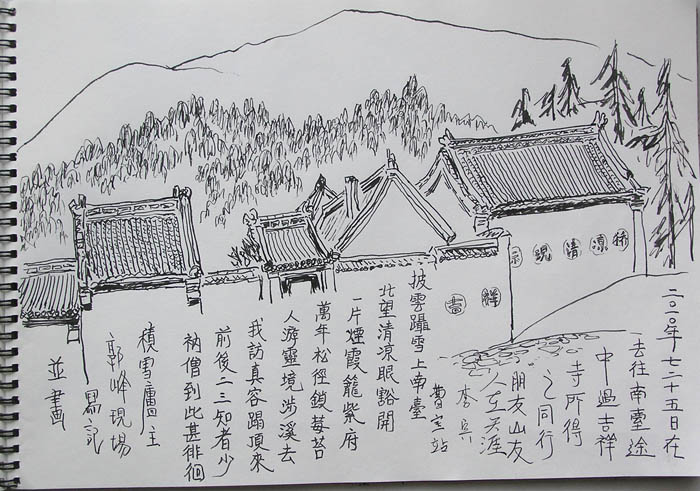 二〇一〇年七.二十五日在
去往南臺途
中過吉祥
寺所得
之同行
朋友山友
人在天涯
披雲躡雪上南臺
北望清凉眼豁開
一片煙霞籠紫府
萬年松徑鎖莓苔
人游靈境涉溪去
我訪真容蹋頂來
前後二三知者少
衲僧到此甚徘徊
積雪廬主
現場
寫記
並畫
凉清現
祥